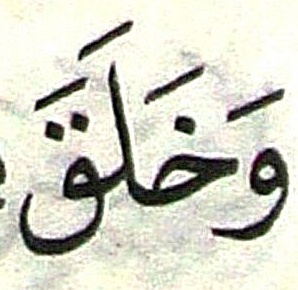 وَخَلَقَ